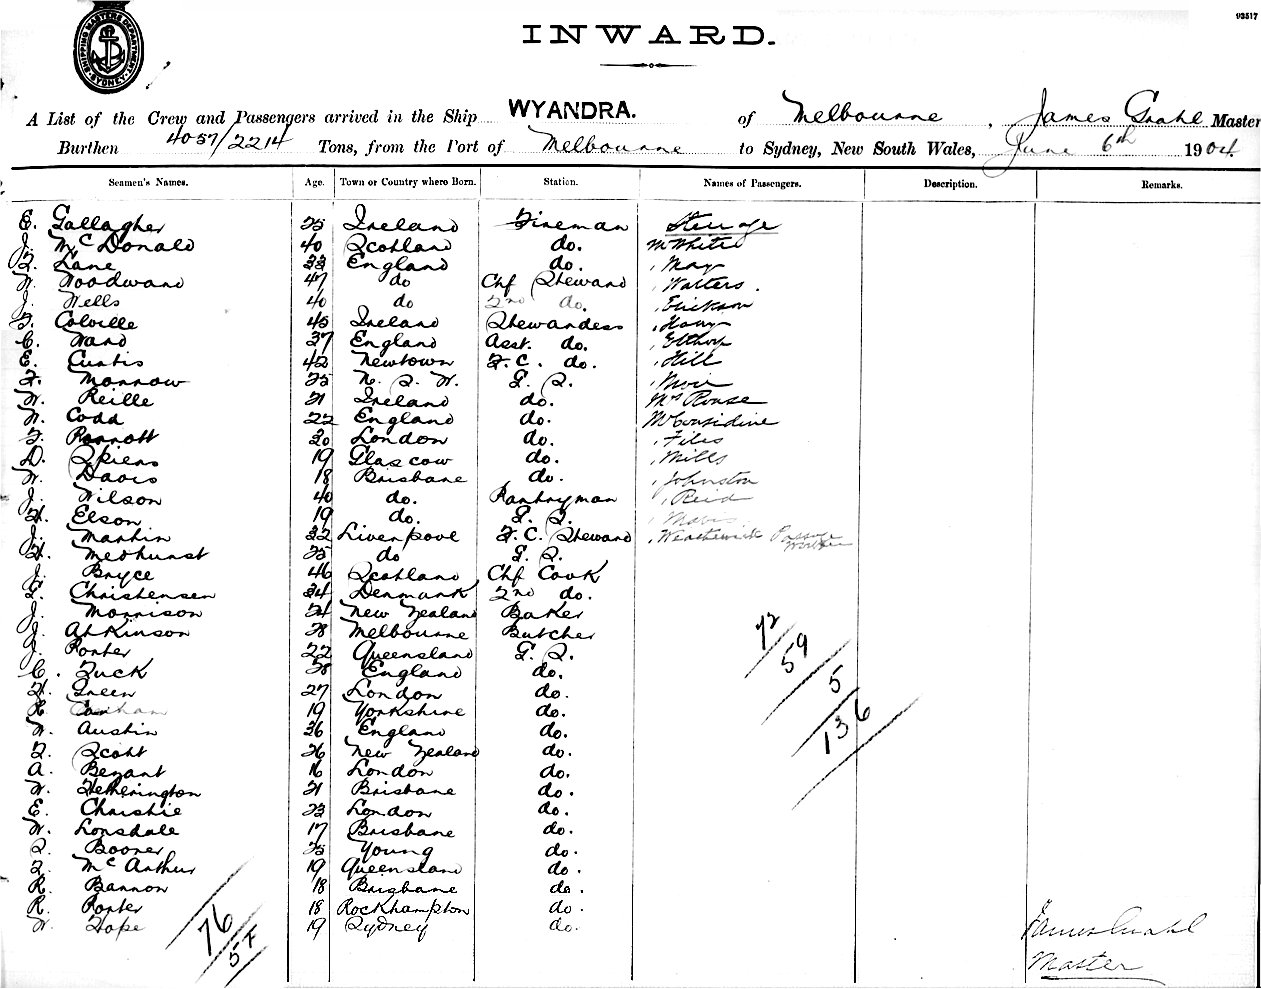 93517
SHIPPING MASTERS DEPARTMENT SYDNEY
INWARD.
A List of the Crew and Passengers arrived in the Ship WYANDRA. of Melbourne, James Grahl Master
Burthen 4057/2214 Tons, from the Port of Melbourne to Sydney, New South Wales, June 6th 1904.
Seamen's Names. Age. Town or Country where Born. Station. Names of Passengers. Description. Remarks.
E. Gallagher 25 Ireland Fireman Steerage
J. McDonald 40 Scotland do. Mr White
Lane 33 England do. , May
W. Woodward 47 do Chf Steward , Walters.
J. Wells 40 do 2nd do. , Erikson
Colville 45 Ireland Stewardess
C. Ward 37 England Asst. do.
E. Curtis 42 Newtown F.C. do. , Hill
Morrow 25 N. S. W. G. S.
W. Reille 21 Ireland do. Mrs Rouse
W. Codd 22 England do. Mr Considine
Parrott 20 London do. , Files
D. Skiens 19 Glascow do. , Mills
W. Davis 18 Brisbane do. , Johnston
J. Wilson 40 do. Pantryman , Reid
H. Elson 19 do. G. S.
J. Martin 32 Liverpool F.C. Steward
H. Medhurst 25 do G. S.
J. Bryce 46 Scotland Chf Cook
Christensen 34 Denmark 2nd do.
J. Morrison 24 New Zealand Baker
J. Atkinson 28 Melbourne Butcher
J. Porter 22 Queensland G. S.
C. Tuck 28 England do.
H. Green 27 London do.
19 Yorkshire do.
W. Austin 26 England do.
Scott 26 New Zealand do.
A. Bezant 16 London do.
W. Hetherington 21 Brisbane do.
E. Christie 23 London do.
W. Lonsdale 17 Brisbane do.
S. Booner 25 Young do.
McArthur 19 Queensland do.
R. Bannon 18 Brisbane do.
R. Porter 18 Rockhampton do.
W. Hope 19 Sydney do.
72
59
5
136
76
James Grahl
Master